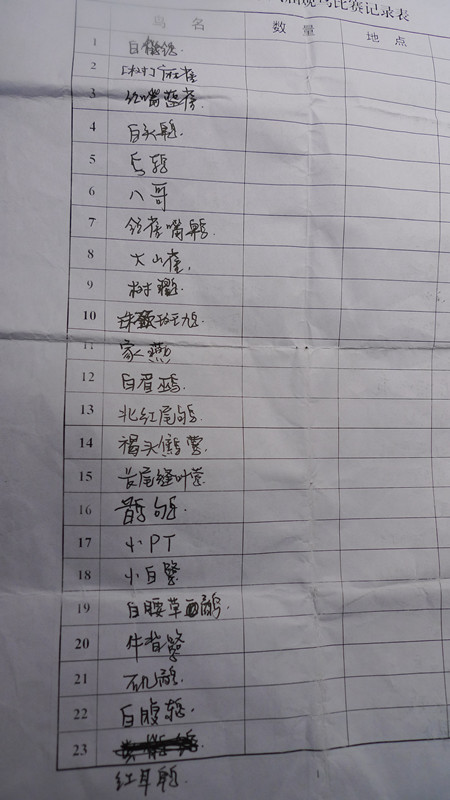 观鸟比赛记录表
鸟 名 数 量 地 点
1 白鹡鸰.
2 (树)麻雀
3 红嘴蓝雀.
4 白头鹎.
5 乌鸫.
6 八哥
7 领雀嘴鹎.
8 大山雀.
9 树鹨.
10 珠颈斑鸠.
11 家燕
12 白眉鹀.
13 北红尾鸲.
14 褐头鹪莺.
15 长尾缝叶莺.
16 鹊鸲.
17 小PT
18 小白鹭
19 白腰草鹬.
20 牛背鹭
21 矶鹬.
22 白腹鸫.
23
红耳鹎.